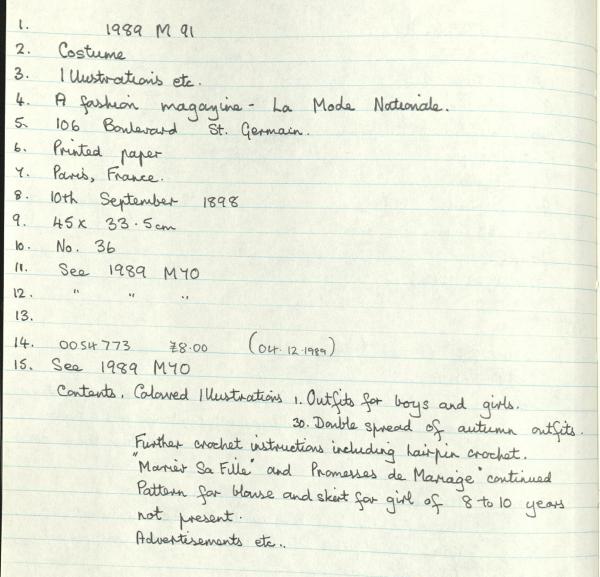 1. 1989 M 91
2. Costume
3. Illustrations etc.
4. A fashion magazine - La Mode Nationale.
5. 106 Boulevard St. Germain.
6. Printed paper
7. Paris, France.
8. 10th September 1898
9. 45 x 33.5 cm
10. No. 36
11. See 1989 M70
12. " " "
13.
14. 0054773 £8.00 (04.12.1989)
15. See 1989 M70
Contents. Coloured Illustrations 1. Outfits for boys and girls.
30. Double spread of autumn outfits.
Further crochet instructions including hairpin crochet.
"Marier Sa Fille" and Promesses de Mariage" continued
Pattern for blouse and skirt for girl of 8 to 10 years
not present.
Advertisements etc..